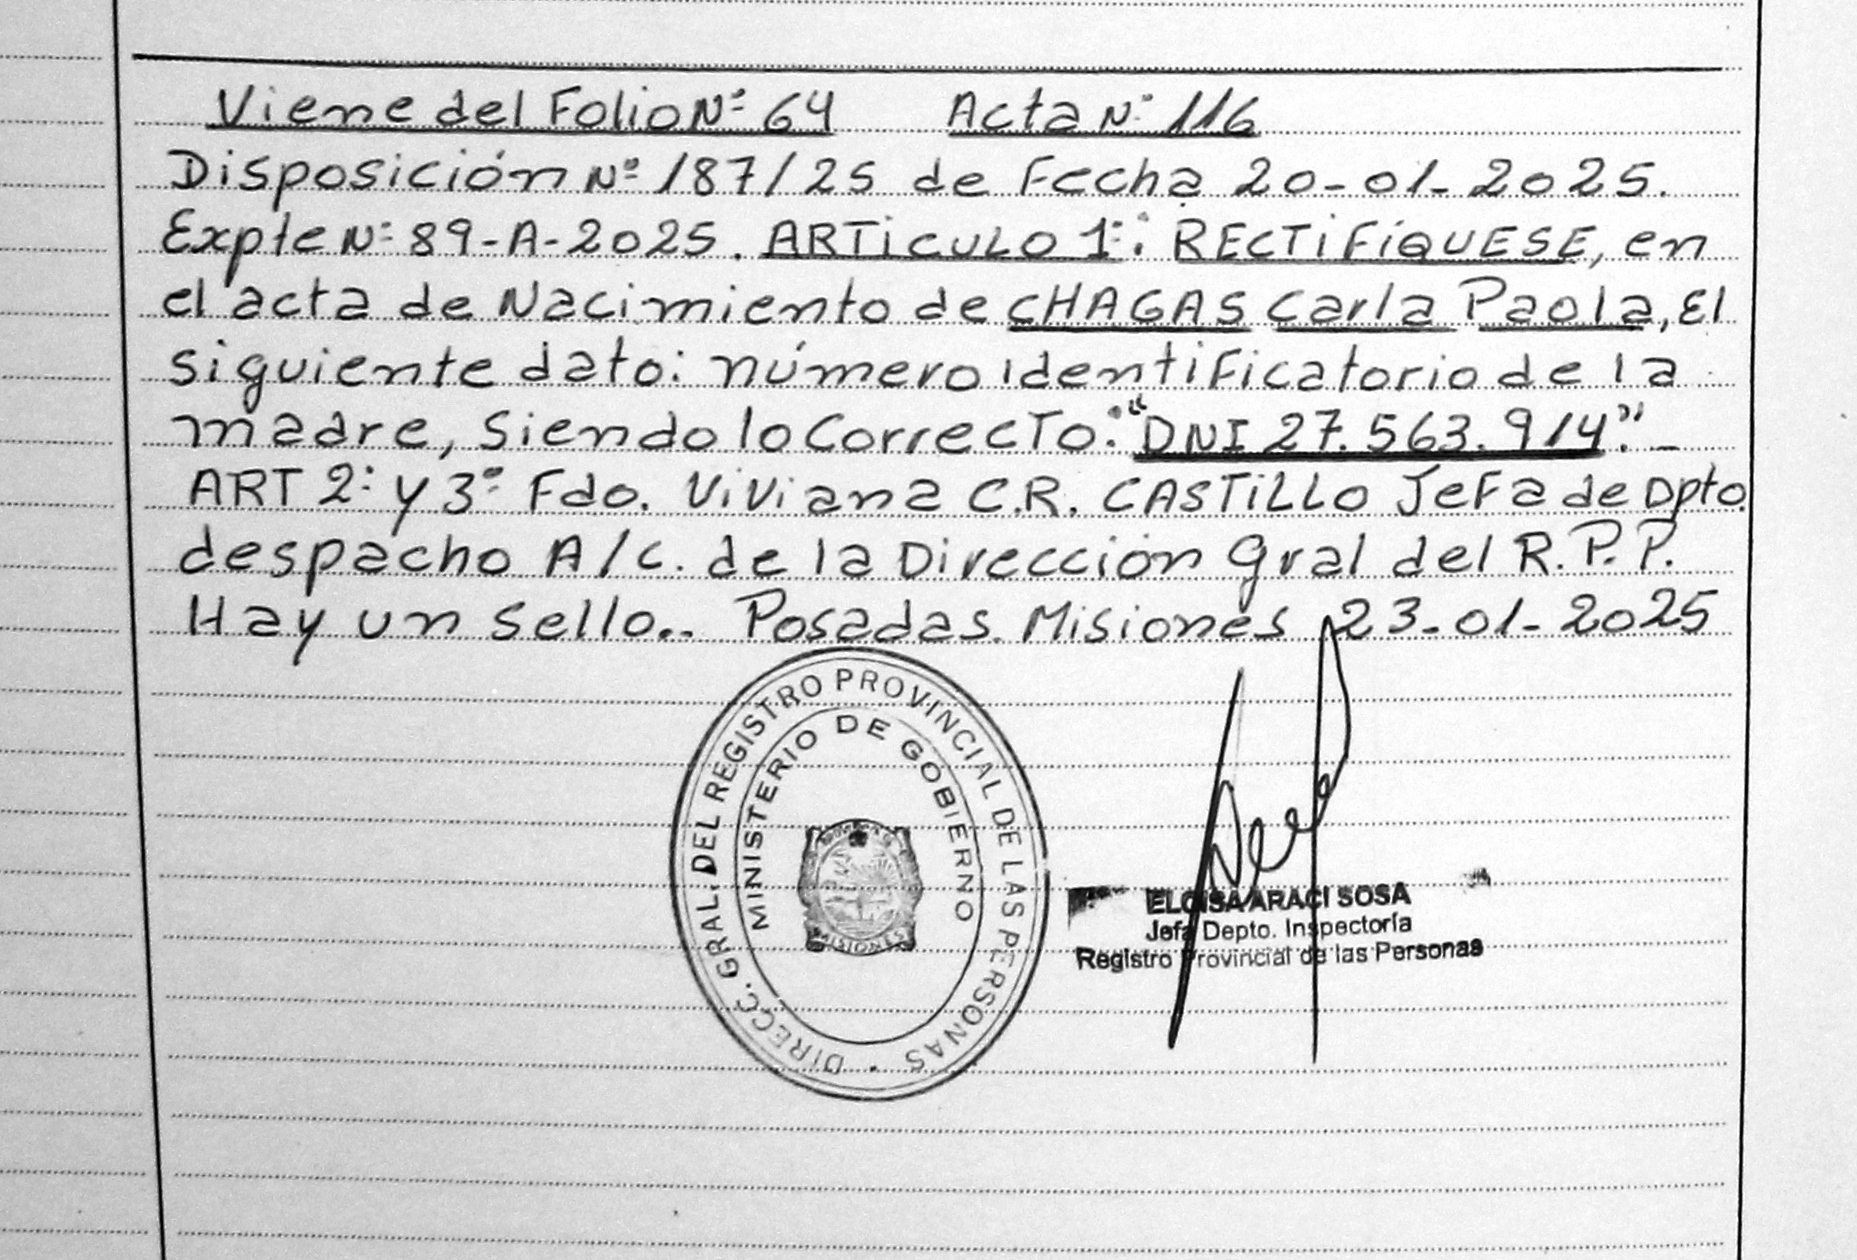 Viene del Folio Nº 64 Acta Nº 116
Disposición Nº 187/25 de Fecha 20-01-2025.
Expte Nº 89-A-2025. ARTICULO 1º: RECTIFÍQUESE, en
el acta de Nacimiento de CHAGAS Carla Paola, El
siguiente dato: número identificatorio de la
madre, siendo lo correcto: "DNI 27.563.914".-
ART 2º y 3º Fdo. Viviana C.R. CASTILLO Jefa de Dpto.
despacho A/C. de la Dirección Gral del R.P.P.
Hay un sello.. Posadas Misiones 23-01-2025
DIRECC. GRAL. DEL REGISTRO PROVINCIAL DE LAS PERSONAS
MINISTERIO DE GOBIERNO
MISIONES
ELOISA ARACI SOSA
Jefa Depto. Inspectoría
Registro Provincial de las Personas